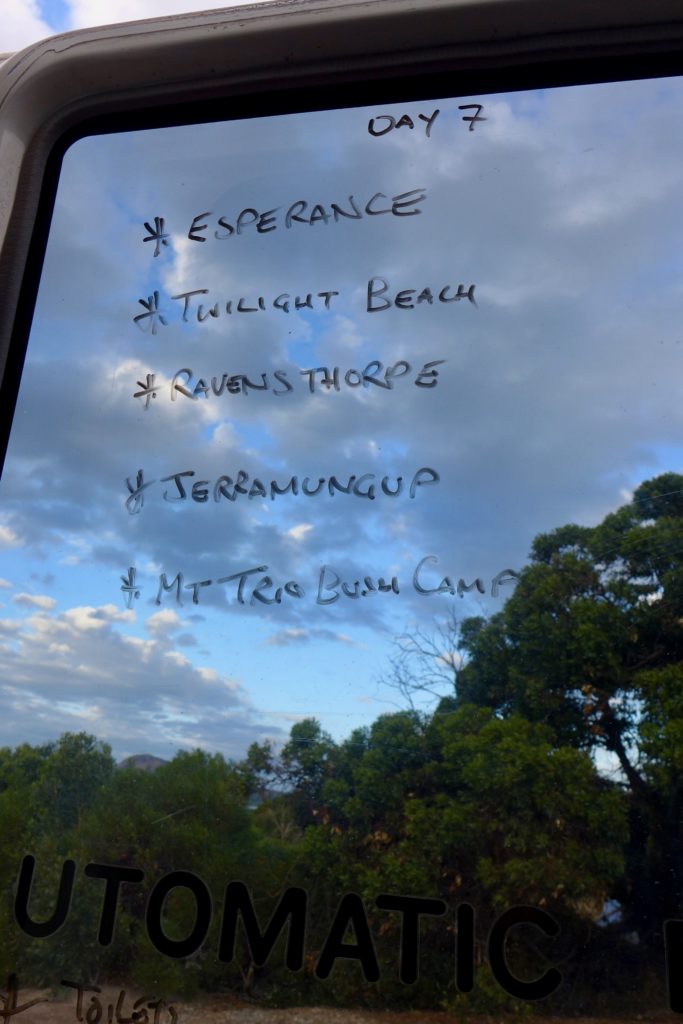 DAY 7
* ESPERANCE
* TWILIGHT BEACH
* RAVENSTHORPE
* JERRAMUNGUP
* MT TRIO BUSH CAMP
UTOMATIC
* TOILETS